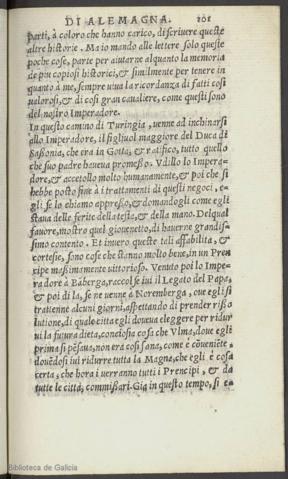 DI ALEMAGNA. 101
parti, à coloro che hanno carico, di scriuere queste
altre historie. Ma io mando alle lettere solo queste
poche cose, parte per aiutarne alquanto la memoria
de piu copiosi historici, & similmente per tenere in
quanto à me, sempre uiua la ricordanza di fatti cosi
ualorosi, & di cosi gran caualiere, come questi sono
del nostro Imperadore.
In questo camino di Turingia, uenne ad inchinarsi
allo Imperadore, il figliuol maggiore del Duca di
Sassonia, che era in Gotta, & ratifico, tutto quello
che suo padre haueua promesso. Vdillo lo Impera-
dore, & accetollo molto humanamente, & poi che si
hebbe posto fine à i trattamenti di questi negoci, e-
gli se lo chiamo appresso, & domandogli come egli
staua delle ferite della testa, & della mano. Del qual
fauore, mostro quel giouenetto, di hauerne grandis-
simo contento. Et inuero queste tali affabilita, &
cortesie, sono cose che stanno molto bene, in un Pren
cipe massimamente uittorioso. Venuto poi lo Impe-
radore à Bāberga, raccolse iui il Legato del Papa,
& poi di la, se ne uenne à Noremberga, oue egli si
trattenne alcuni giorni, aspettando di prender riso-
lutione, di quale citta egli doueua eleggere per ridur
ui la futura dieta, conciosia cosa che Vlma, doue egli
prima si pēsaua, non era cosi sana, come è cōueniēte,
douēdosi iui ridurre tutta la Magna, che egli è cosa
certa, che hora i uerranno tutti i Prencipi, & da
tutte le citta, commissari. Gia in questo tempo, si e-
Biblioteca de Galicia